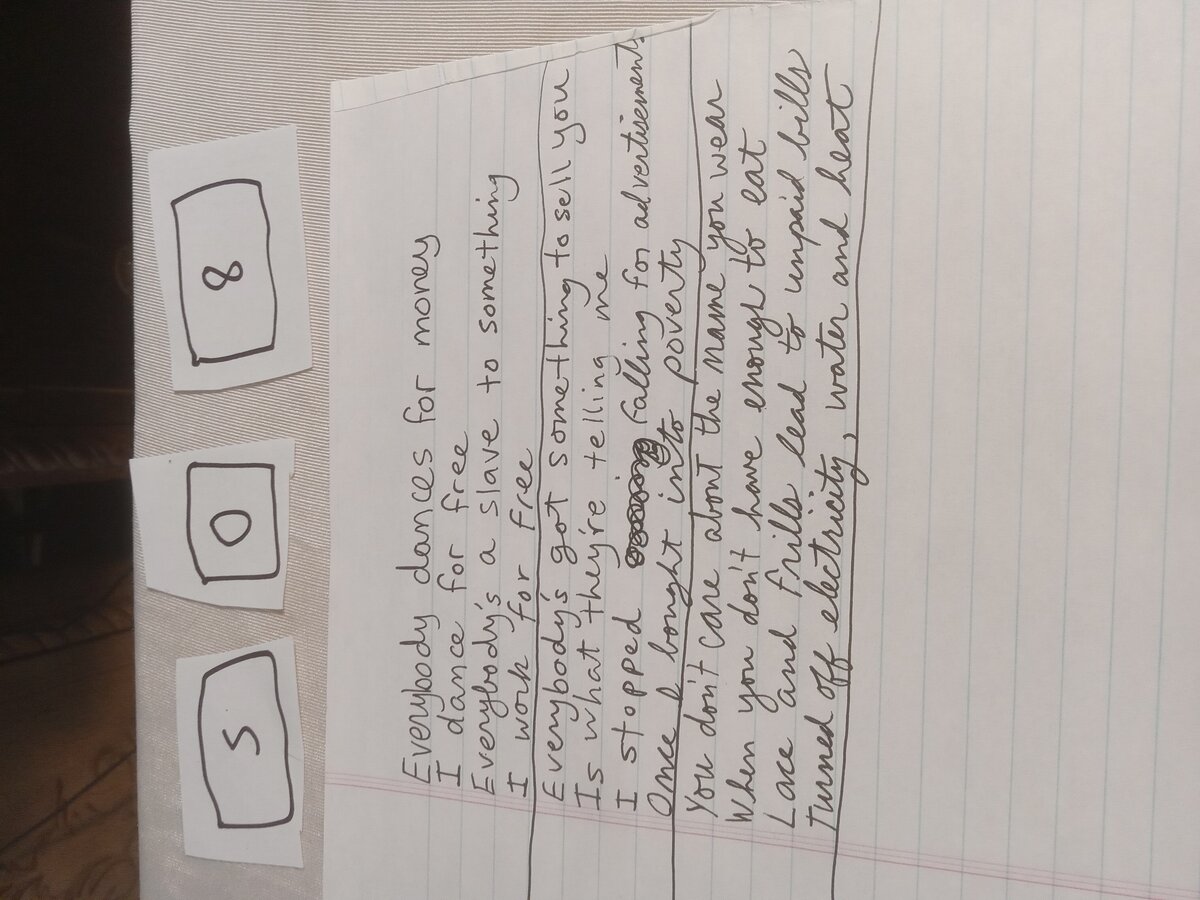 5 0 8
Everybody dances for money
I dance for free
Everybody's a slave to something
I work for free
Everybody's got something to sell you
Is what they're telling me
I stopped falling for advertisements
Once I bought into poverty
You don't care about the name you wear
When you don't have enough to eat
Lace and frills lead to unpaid bills
Turned off electricity, water and heat